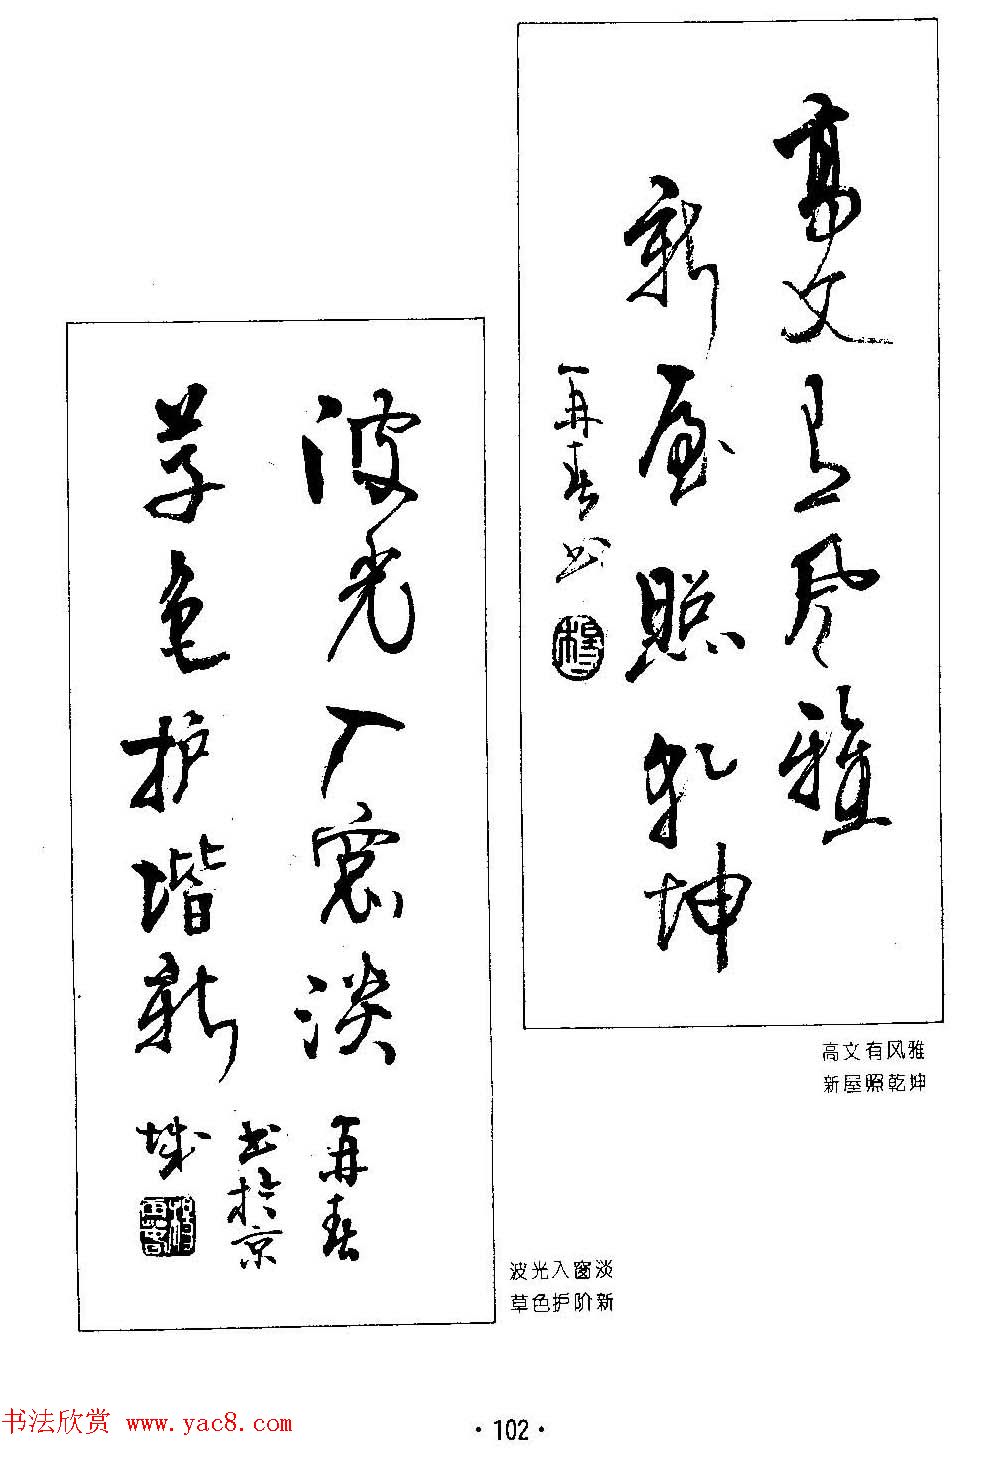 高文有风雅
新屋照乾坤
再春书
穆
高文有风雅
新屋照乾坤
波光入窗淡
草色护阶新
再春
书于京
城
波光入窗淡
草色护阶新
书法欣赏 www.yac8.com
·102·